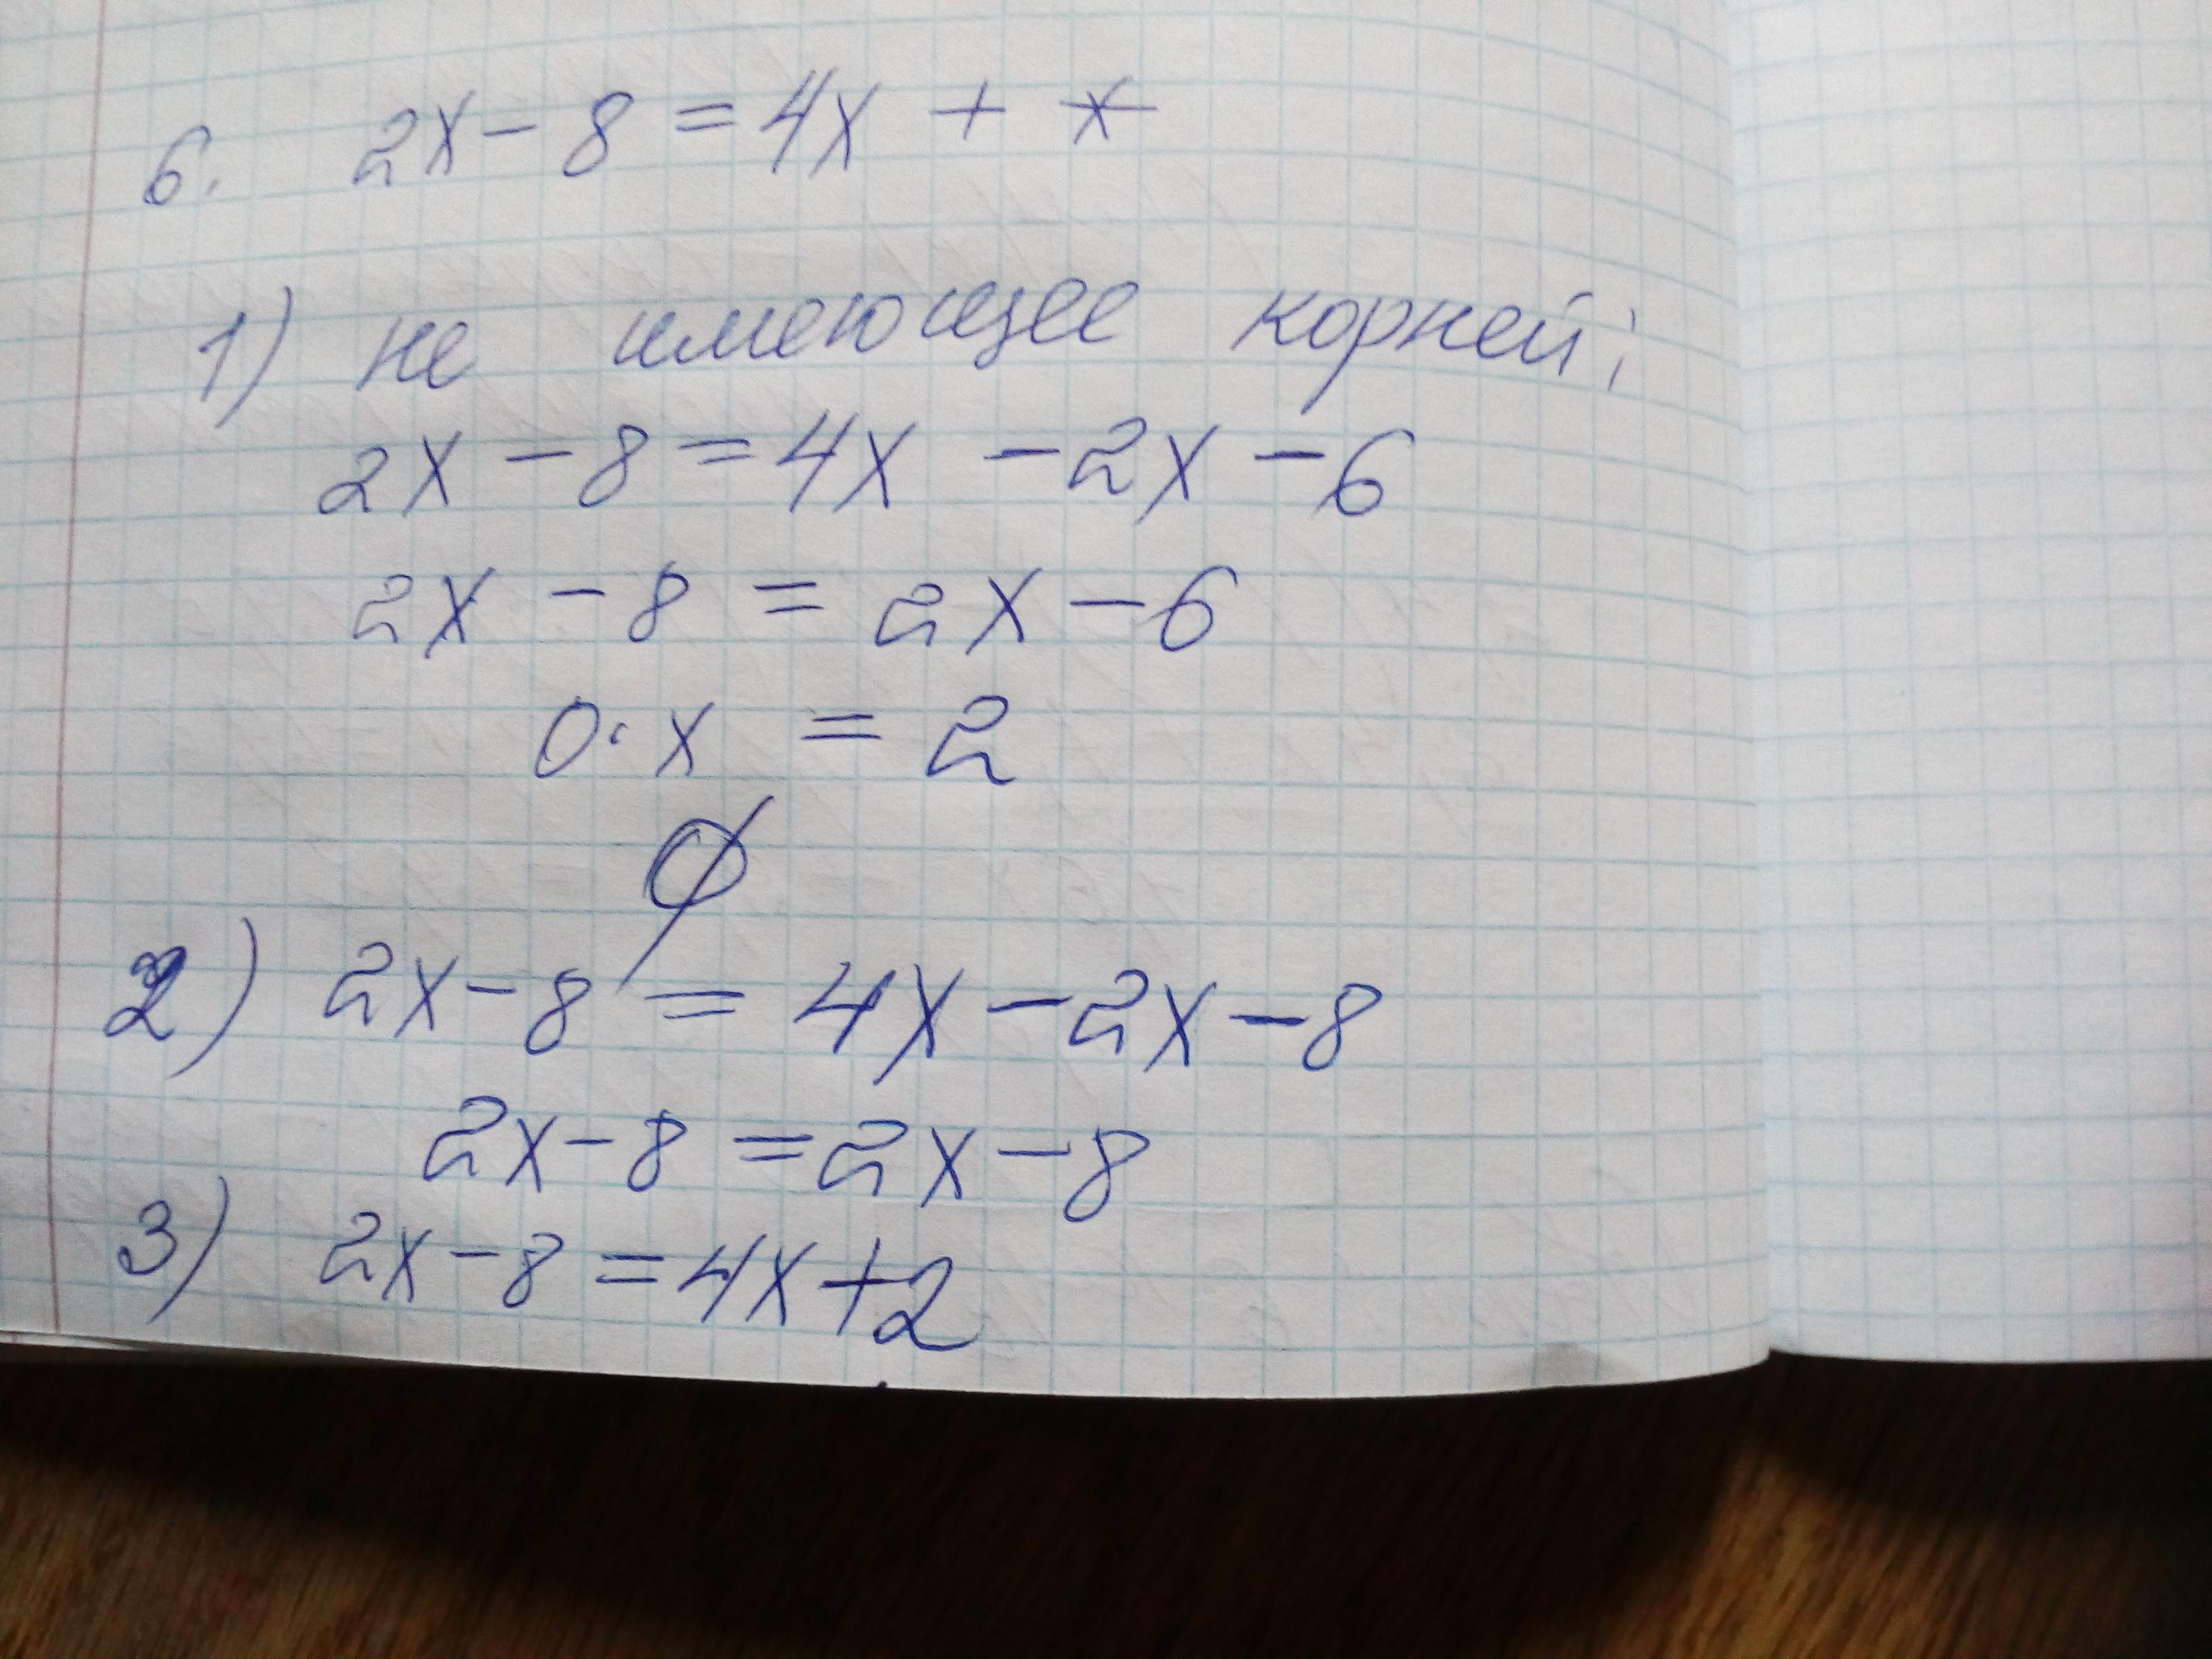 6. 2x - 8 = 4x + *
1) не имеющее корней;
2x - 8 = 4x - 2x - 6
2x - 8 = 2x - 6
0·x = 2
∅
2) 2x - 8 = 4x - 2x - 8
2x - 8 = 2x - 8
3) 2x - 8 = 4x + 2